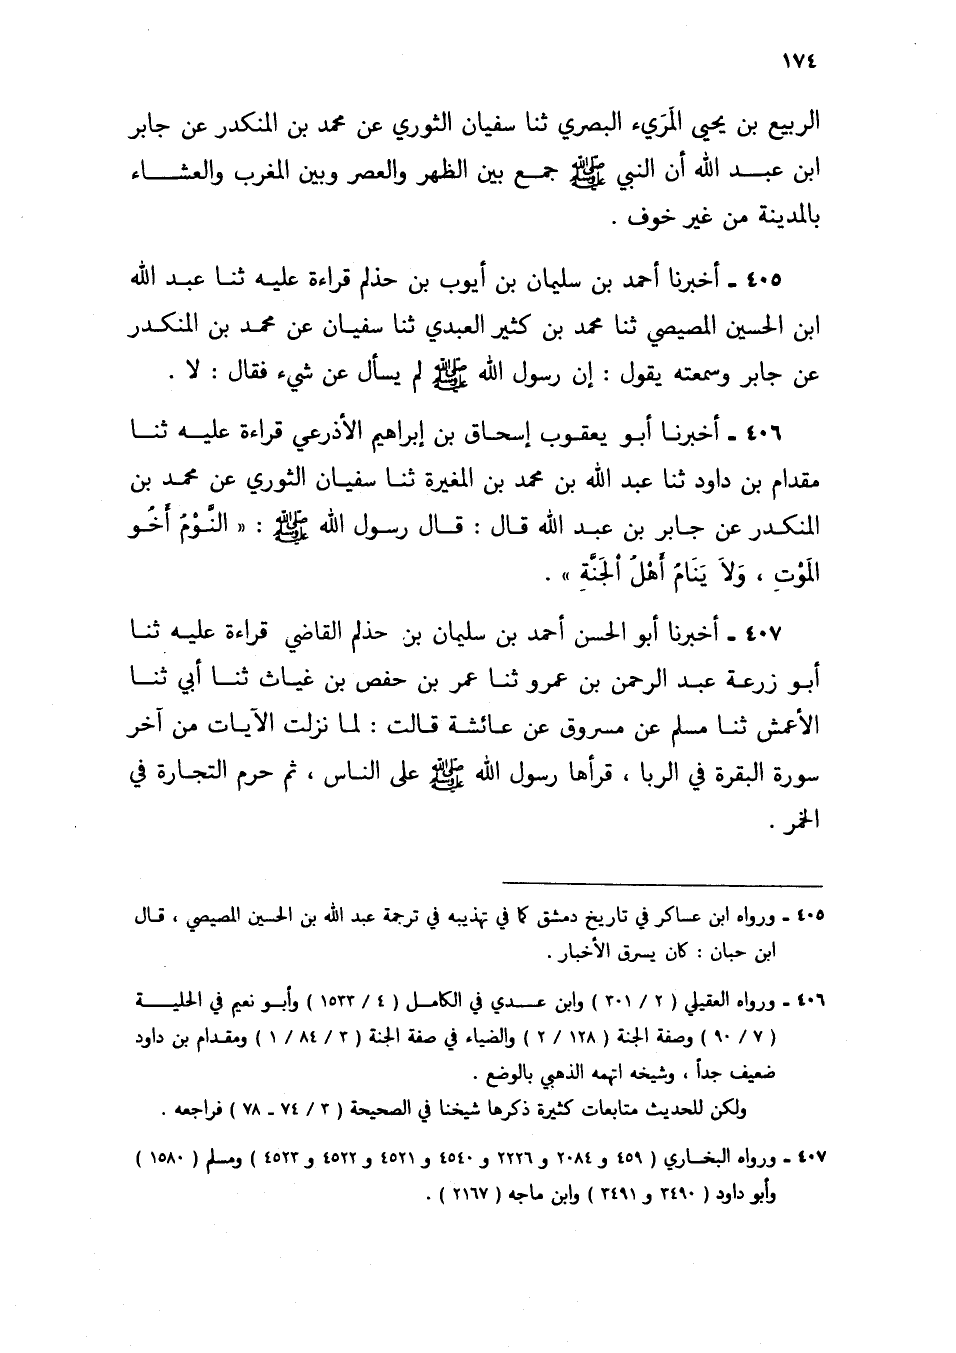 ١٧٤
الربيع بن يحيى المَرَيء البصري ثنا سفيان الثوري عن محمد بن المنكدر عن جابر
ابن عبد الله أن النبي ﷺ جمع بين الظهر والعصر وبين المغرب والعشاء
بالمدينة من غير خوف .
٤٠٥ ـ أخبرنا أحمد بن سليمان بن أيوب بن حذلم قراءة عليه ثنا عبد الله
ابن الحسين المصيصي ثنا محمد بن كثير العبدي ثنا سفيان عن محمد بن المنكدر
عن جابر وسمعته يقول : إن رسول الله ﷺ لم يسأل عن شيء فقال : لا .
٤٠٦ ـ أخبرنا أبو يعقوب إسحاق بن إبراهيم الأذرعي قراءة عليه ثنا
مقدام بن داود ثنا عبد الله بن محمد بن المغيرة ثنا سفيان الثوري عن محمد بن
المنكدر عن جابر بن عبد الله قال : قال رسول الله ﷺ : « النَّوْمُ أَخُو
المَوْتِ ، وَلاَ يَنَامُ أَهْلُ ألجَنَّةِ » .
٤٠٧ ـ أخبرنا أبو الحسن أحمد بن سليمان بن حذلم القاضي قراءة عليه ثنا
أبو زرعة عبد الرحمن بن عمرو ثنا عمر بن حفص بن غياث ثنا أبي ثنا
الأعمش ثنا مسلم عن مسروق عن عائشة قالت : لما نزلت الآيات من آخر
سورة البقرة في الربا ، قرأها رسول الله ﷺ على الناس ، ثم حرم التجارة في
الخمر .
٤٠٥ ـ ورواه ابن عساكر في تاريخ دمشق كما في تهذيبه في ترجمة عبد الله بن الحسين المصيصي ، قال
ابن حبان : كان يسرق الأخبار .
٤٠٦ ـ ورواه العقيلي ( ٢ / ٣٠١ ) وابن عدي في الكامل ( ٤ / ١٥٣٣ ) وأبو نعيم في الحلية
( ٧ / ٩٠ ) وصفة الجنة ( ١٢٨ / ٢ ) والضياء في صفة الجنة ( ٣ / ٨٤ / ١ ) ومقدام بن داود
ضعيف جداً ، وشيخه اتهمه الذهبي بالوضع .
ولكن للحديث متابعات كثيرة ذكرها شيخنا في الصحيحة ( ٣ / ٧٤ ـ ٧٨ ) فراجعه .
٤٠٧ ـ ورواه البخاري ( ٤٥٩ و ٢٠٨٤ و ٢٢٢٦ و ٤٥٤٠ و ٤٥٢١ و ٤٥٢٢ و ٤٥٢٣ ) ومسلم ( ١٥٨٠ )
وأبو داود ( ٣٤٩٠ و ٣٤٩١ ) وابن ماجه ( ٢١٦٧ ) .